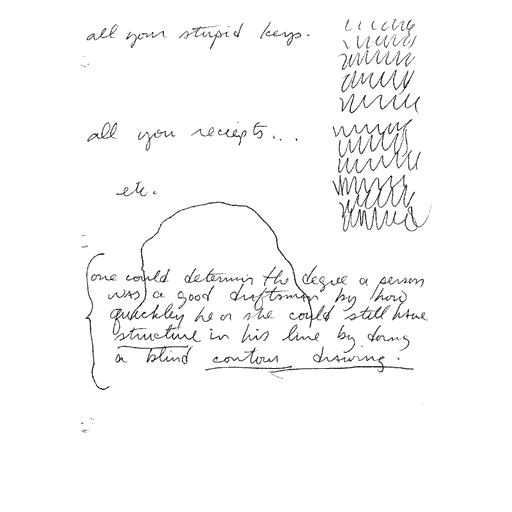 all your stupid keys.
all you reciepts...
etc.
one could determin the degree a person
was a good draftsman by how
quickley he or she could still have
structure in his line by doing
a blind contour drawing.